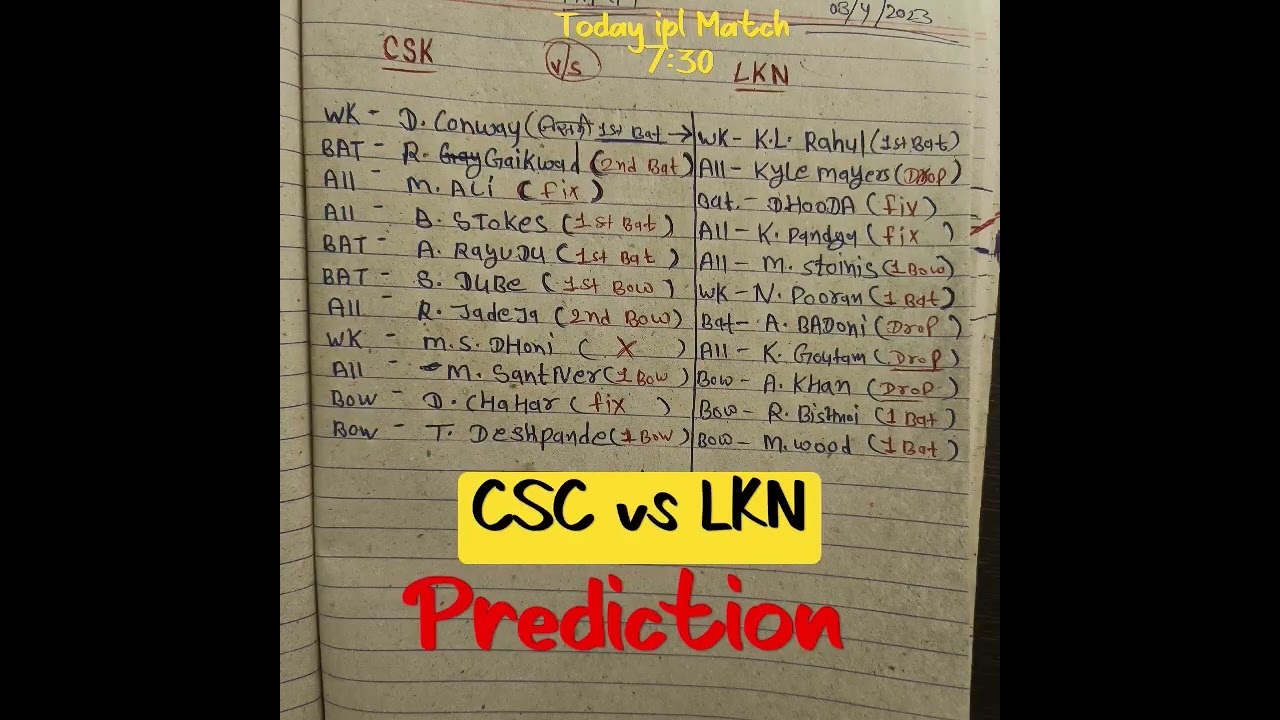 03/4/2023
Today ipl Match
7:30
CSK v/s LKN
WK - D. Conway ( 1st Bat →
BAT - R. Gaikwad (2nd Bat)
All - M. ALi (fix)
All - B. STokes (1st Bat)
BAT - A. RayuDu (1st Bat)
BAT - S. DuBe (1st Bow)
All - R. JadeJa (2nd Bow)
WK - M.S. DHoni ( X )
All - M. SantNer (1 Bow)
Bow - D. CHaHar (fix )
Bow - T. DesHpande (1 Bow)
WK - K.L. Rahul (1st Bat)
All - Kyle mayers (Drop)
Bat. - DHooDA (fix)
All - K. Pandya (fix )
All - M. Stoinis (1 Bow)
WK - N. Pooran (1 Bat)
Bat - A. BADoni (DroP)
All - K. Goutam (DroP)
Bow - A. KHan (DroP)
Bow - R. Bishnoi (1 Bat)
Bow - M. wood (1 Bat)
CSC vs LKN
Prediction